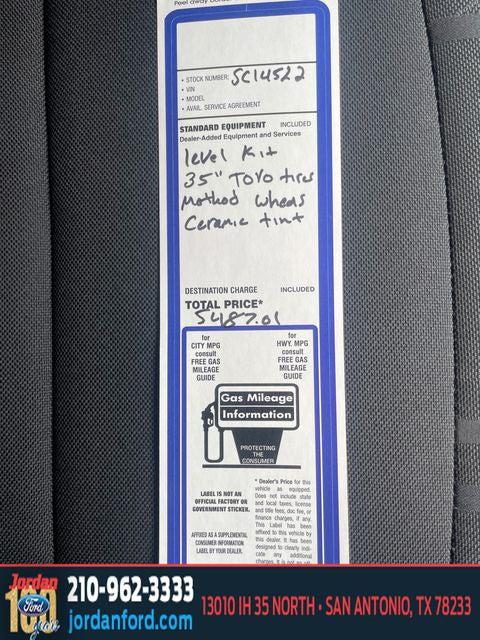 Peel away border
• STOCK NUMBER: SC14522
• VIN
• MODEL
• AVAIL. SERVICE AGREEMENT
STANDARD EQUIPMENT INCLUDED
Dealer-Added Equipment and Services
level Kit
35" TOYO tires
Method Wheels
Ceramic tint
DESTINATION CHARGE INCLUDED
TOTAL PRICE*
5487.01
for
CITY MPG
consult
FREE GAS
MILEAGE
GUIDE
for
HWY. MPG
consult
FREE GAS
MILEAGE
GUIDE
Gas Mileage
Information
PROTECTING
THE
CONSUMER
LABEL IS NOT AN
OFFICIAL FACTORY OR
GOVERNMENT STICKER.
AFFIXED AS A SUPPLEMENTAL
CONSUMER INFORMATION
LABEL BY YOUR DEALER.
* Dealer's Price for this
vehicle as equipped.
Does not include state
and local taxes, license
and title fees, doc fee, or
finance charges, if any.
This Label has been
affixed to this vehicle by
this dealer. It has been
designed to clearly indi-
cate any additional
charges. It is not an off
Jordan
100
Ford
years
210-962-3333
jordanford.com
13010 IH 35 NORTH • SAN ANTONIO, TX 78233